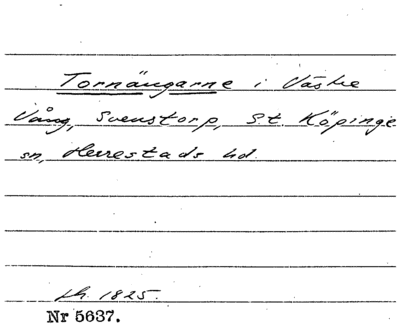 Tornängarne i Västre
Vång, Svenstorp, St. Köpinge
sn, Herrestads hd.
1825.
Nr 5637.